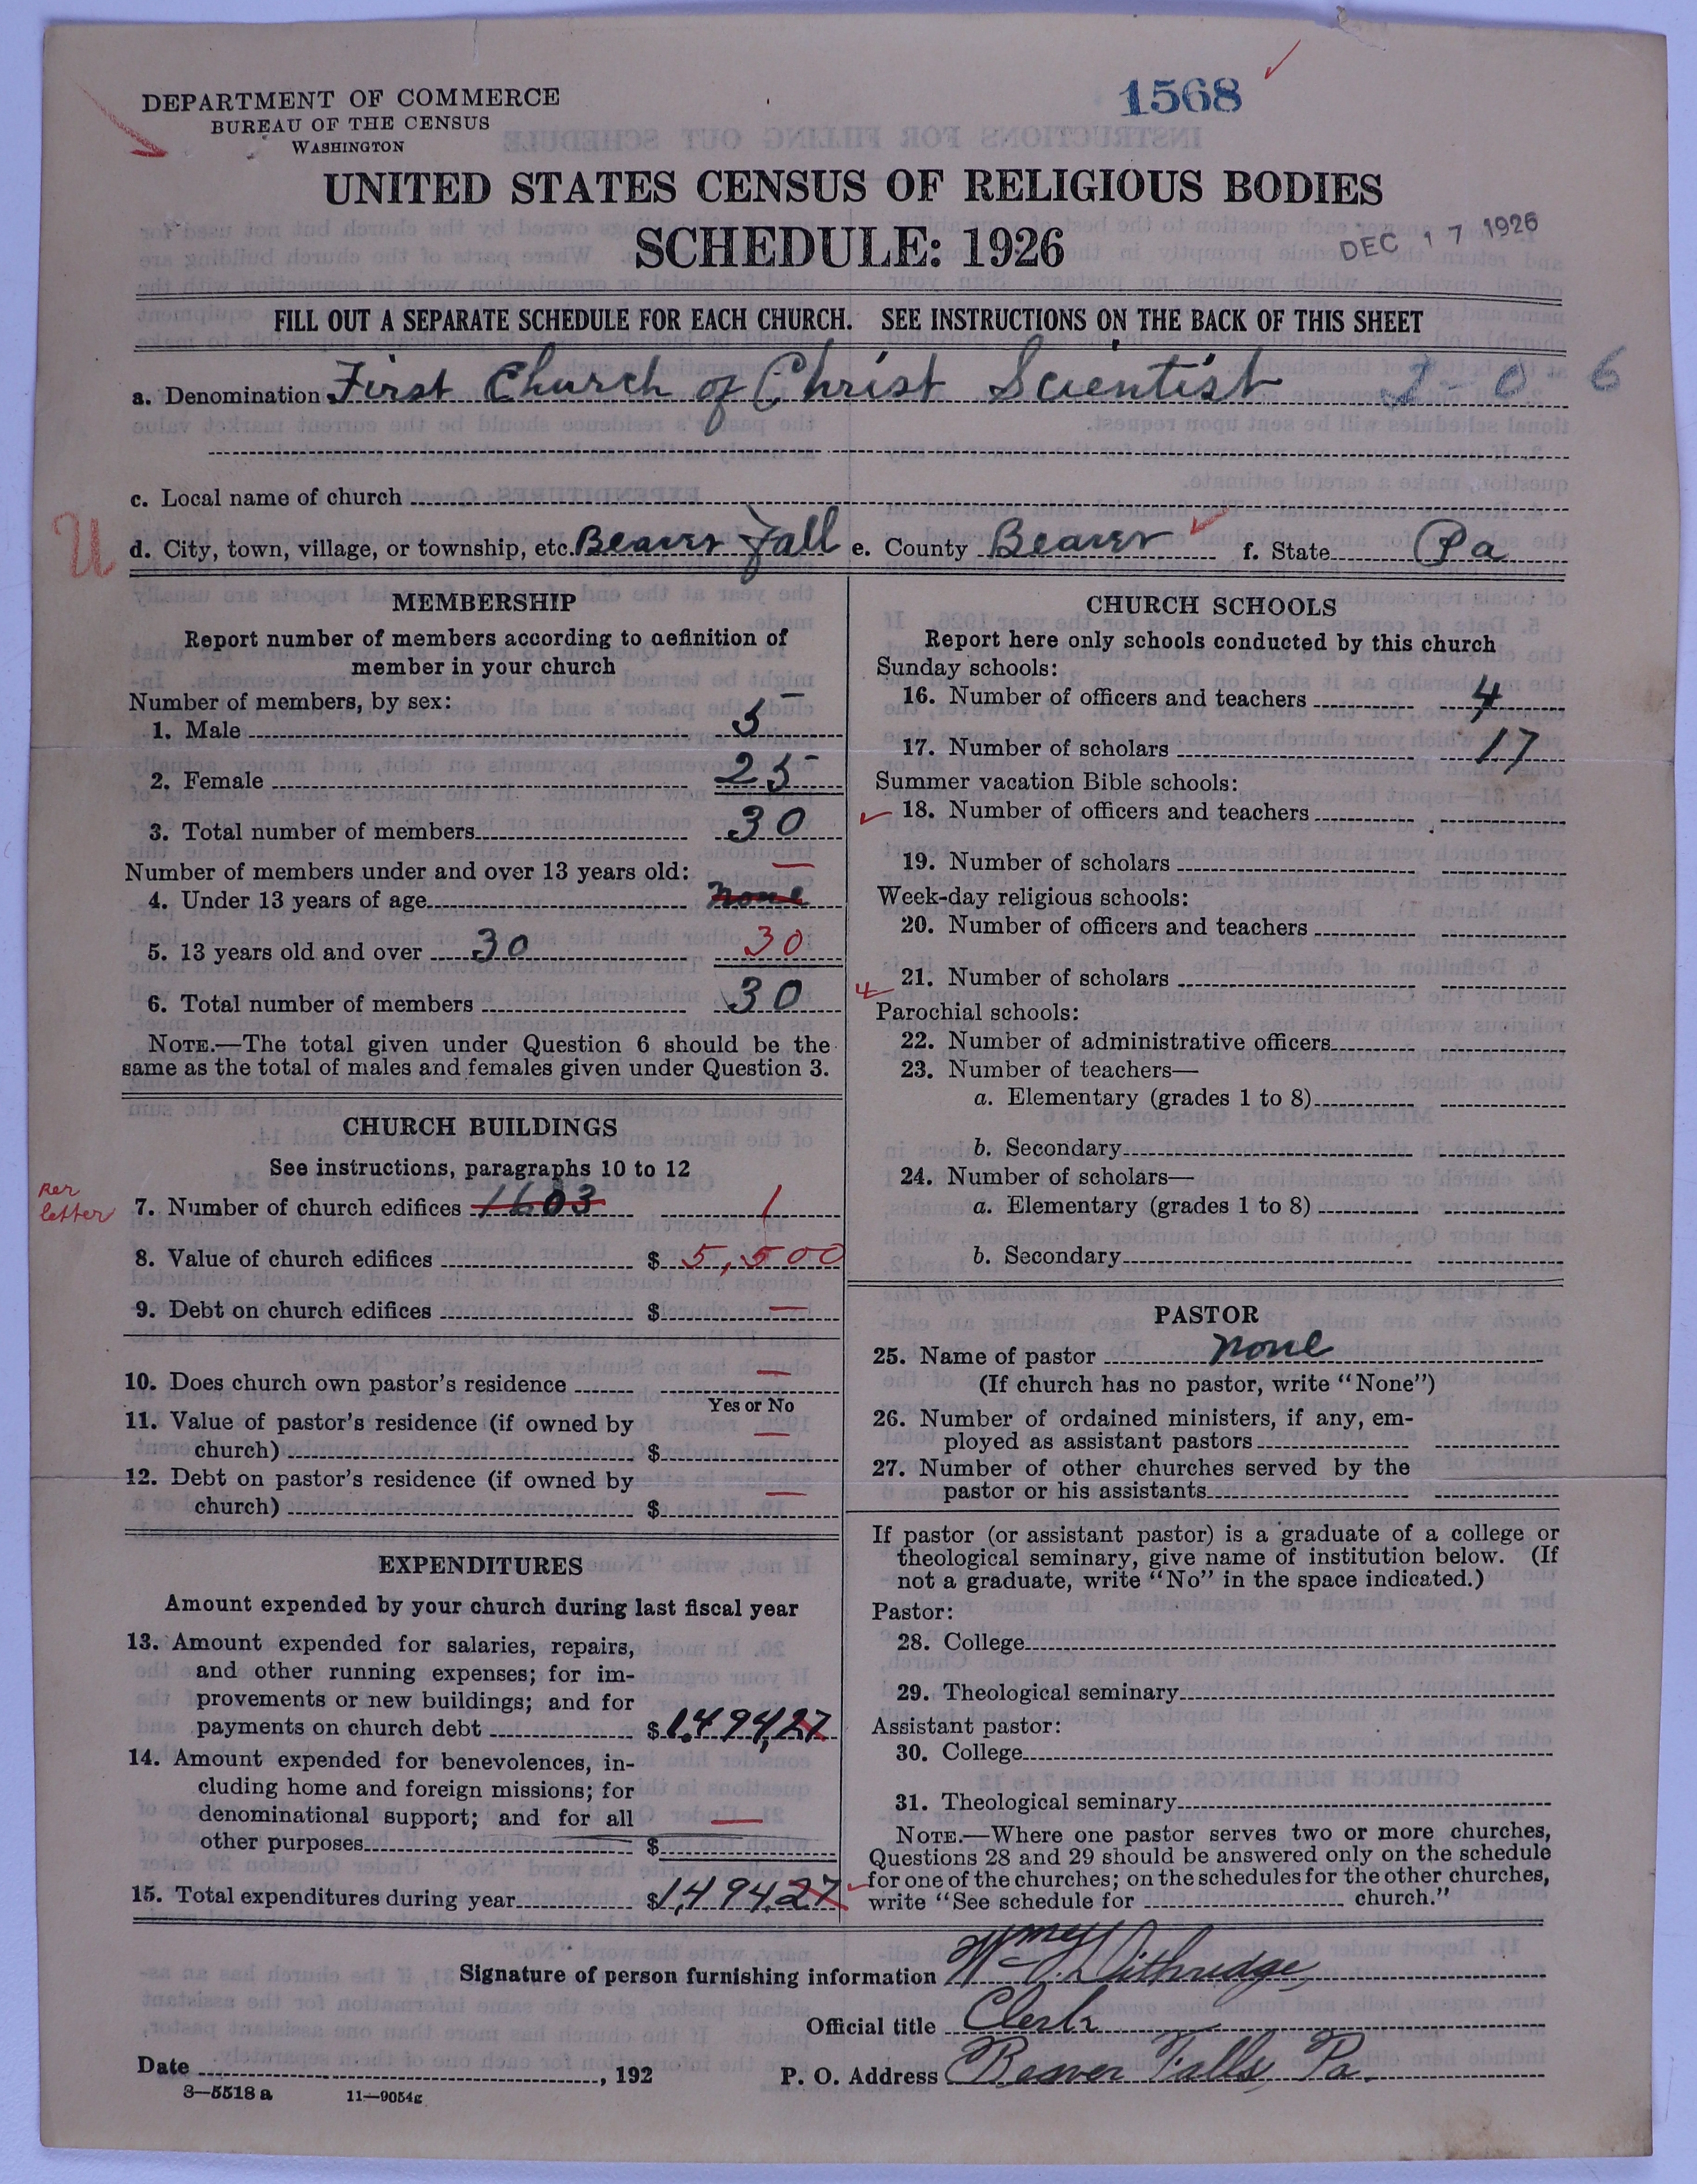 DEPARTMENT OF COMMERCE
BUREAU OF THE CENSUS
WASHINGTON
1568
UNITED STATES CENSUS OF RELIGIOUS BODIES
SCHEDULE: 1926
DEC 17 1926
FILL OUT A SEPARATE SCHEDULE FOR EACH CHURCH. SEE INSTRUCTIONS ON THE BACK OF THIS SHEET
a. Denomination First Church of Christ Scientist 2-0 6
c. Local name of church
U
d. City, town, village, or township, etc. Beaver Fall e. County Beaver f. State Pa
MEMBERSHIP
Report number of members according to definition of
member in your church
Number of members, by sex:
1. Male 5
2. Female 25
3. Total number of members 30
Number of members under and over 13 years old:
4. Under 13 years of age none
5. 13 years old and over 30 30
6. Total number of members 30
NOTE.—The total given under Question 6 should be the
same as the total of males and females given under Question 3.
CHURCH BUILDINGS
See instructions, paragraphs 10 to 12
per
letter
7. Number of church edifices 1603 1
8. Value of church edifices $ 5,500
9. Debt on church edifices $ —
10. Does church own pastor's residence —
Yes or No
11. Value of pastor's residence (if owned by
church) $ —
12. Debt on pastor's residence (if owned by
church) $ —
EXPENDITURES
Amount expended by your church during last fiscal year
13. Amount expended for salaries, repairs,
and other running expenses; for im-
provements or new buildings; and for
payments on church debt $1,494,27
14. Amount expended for benevolences, in-
cluding home and foreign missions; for
denominational support; and for all
other purposes $ —
15. Total expenditures during year $1,494.27
CHURCH SCHOOLS
Report here only schools conducted by this church
Sunday schools:
16. Number of officers and teachers 4
17. Number of scholars 17
Summer vacation Bible schools:
18. Number of officers and teachers
19. Number of scholars
Week-day religious schools:
20. Number of officers and teachers
21. Number of scholars
Parochial schools:
22. Number of administrative officers
23. Number of teachers—
a. Elementary (grades 1 to 8)
b. Secondary
24. Number of scholars—
a. Elementary (grades 1 to 8)
b. Secondary
PASTOR
25. Name of pastor none
(If church has no pastor, write "None")
26. Number of ordained ministers, if any, em-
ployed as assistant pastors
27. Number of other churches served by the
pastor or his assistants
If pastor (or assistant pastor) is a graduate of a college or
theological seminary, give name of institution below. (If
not a graduate, write "No" in the space indicated.)
Pastor:
28. College
29. Theological seminary
Assistant pastor:
30. College
31. Theological seminary
NOTE.—Where one pastor serves two or more churches,
Questions 28 and 29 should be answered only on the schedule
for one of the churches; on the schedules for the other churches,
write "See schedule for church."
Signature of person furnishing information Dithridge,
Official title Clerk
Date , 192 P. O. Address Beaver Falls, Pa.
8—5518a 11—9054g